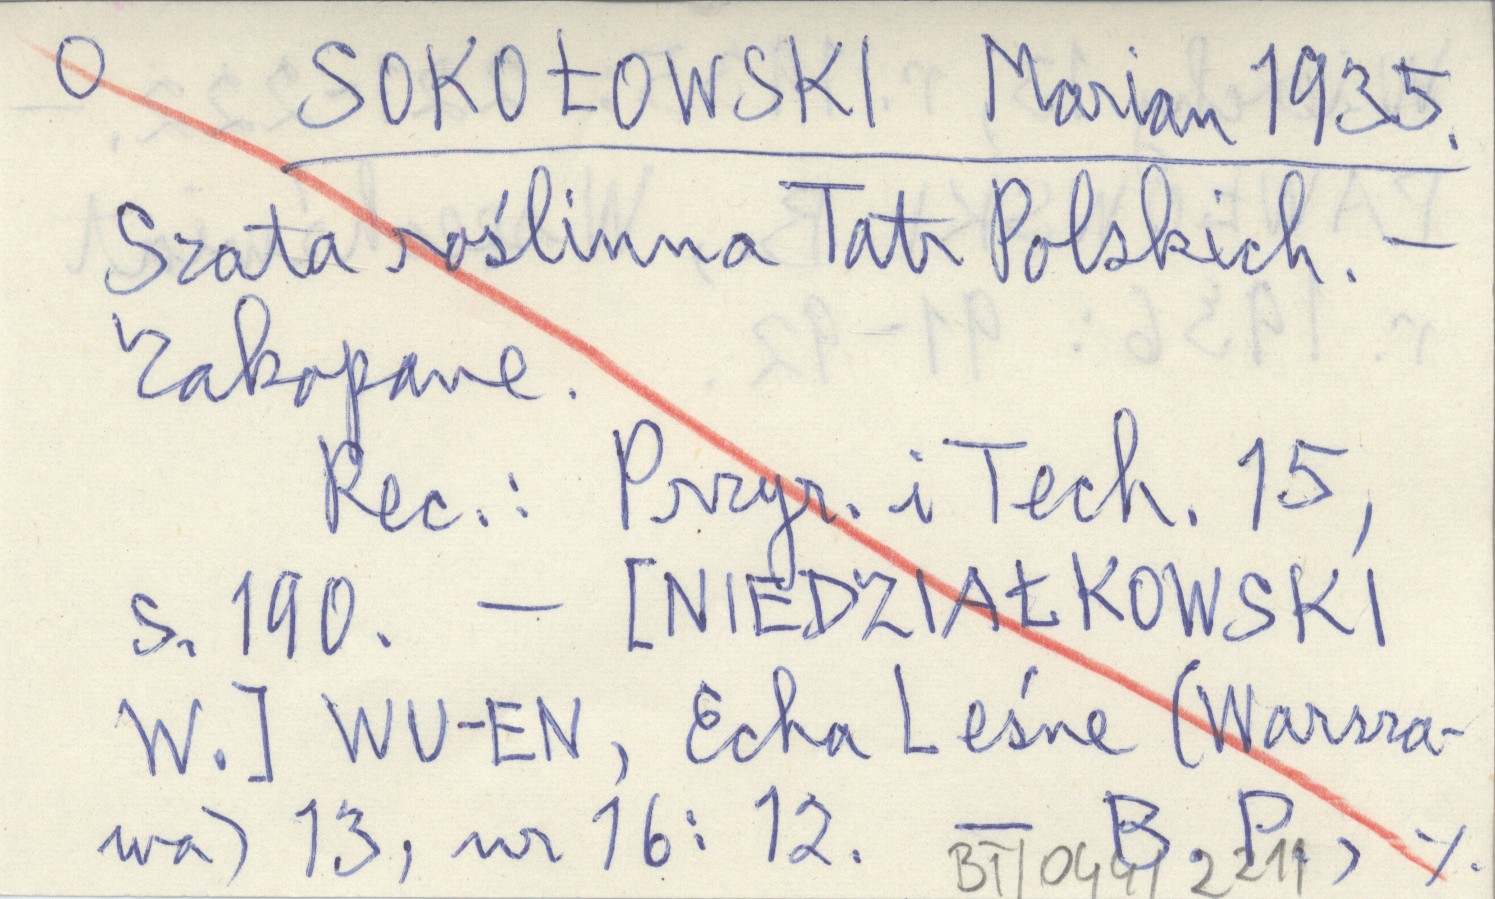 O SOKOŁOWSKI Marian 1935.
Szata roślinna Tatr Polskich. —
Zakopane.
Rec.: Przyr. i Tech. 15,
s. 190. — [NIEDZIAŁKOWSKI
W.] WU-EN, Echa Leśne (Warsza-
wa) 13, nr 16: 12. — B. P., ⁒.
BT/044/2211